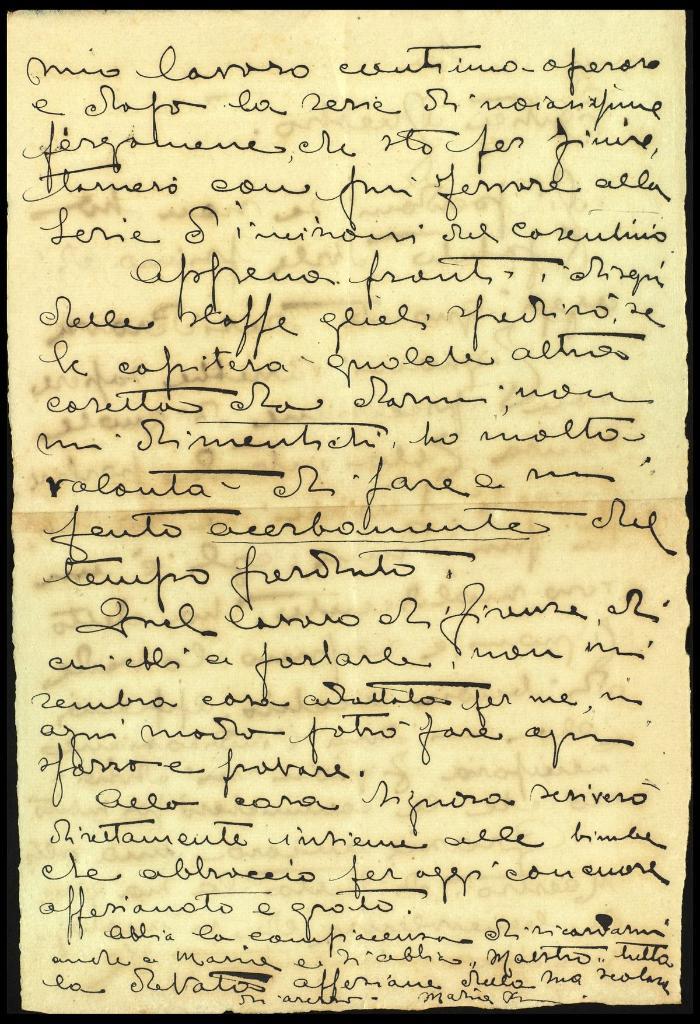 mio lavoro continuo - operoso
e dopo la serie di noiosissime
pergamene, che sto per finire,
tornerò con più fervore alla
serie d'incisioni del casentino
Appena pronti i disegni
delle stoffe glieli spedirò, se
le capiterà qualche altra
cosetta da darmi, non
mi dimentichi, ho molta
volontà di fare e mi
pento acerbamente del
tempo perduto.
Quel lavoro di Firenze, di
cui ebbi a parlarle, non mi
sembra cosa adattata per me, in
ogni modo potrò fare ogni
sforzo e provare.
Alla cara Signora scriverò
direttamente insieme alle bimbe
che abbraccio per oggi con cuore
affezionato e grato.
Abbia la compiacenza di ricordarmi
anche a Maria e si abbia "Maestro" tutta
la devota affezione della sua scolara
di Maria